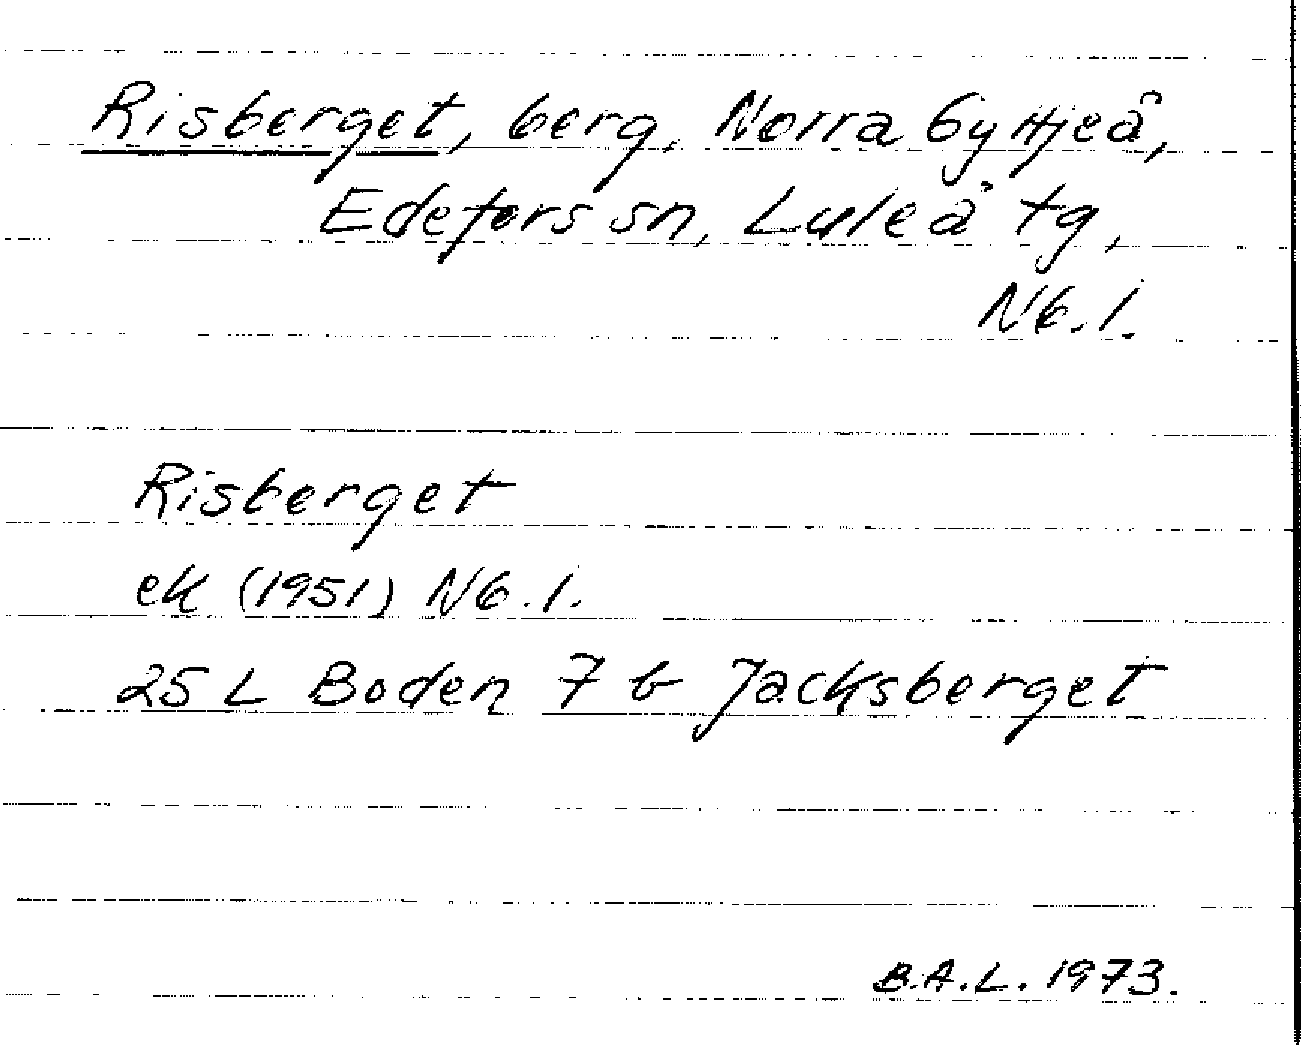 Risberget, berg, Norra Gyttjeå,
Edefors sn, Luleå tg,
Nb. l.
Risberget
ek (1951) Nb. l.
25 L Boden 7 b Jacksberget
B.A.L. 1973.